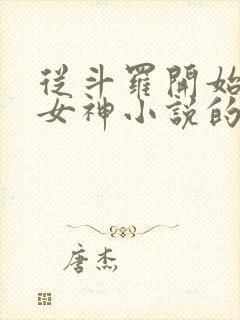 從斗羅開始
女神小說的
唐杰